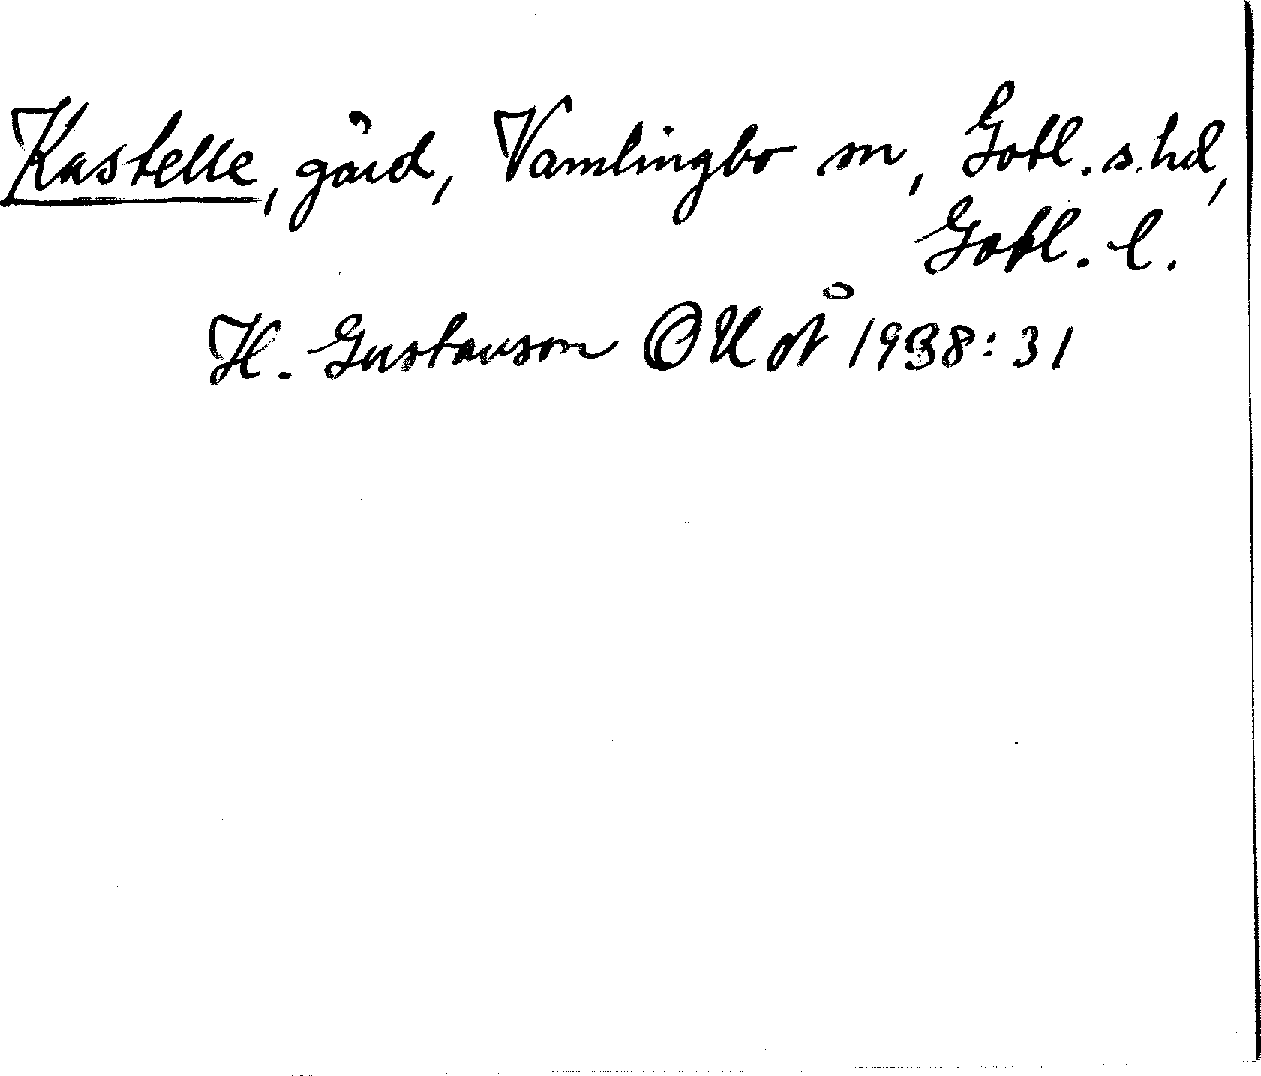 Kastelle, gård, Vamlingbo sn, Gotl. s. hd,
Gotl. l.
H. Gustavson OUÅ 1938:31